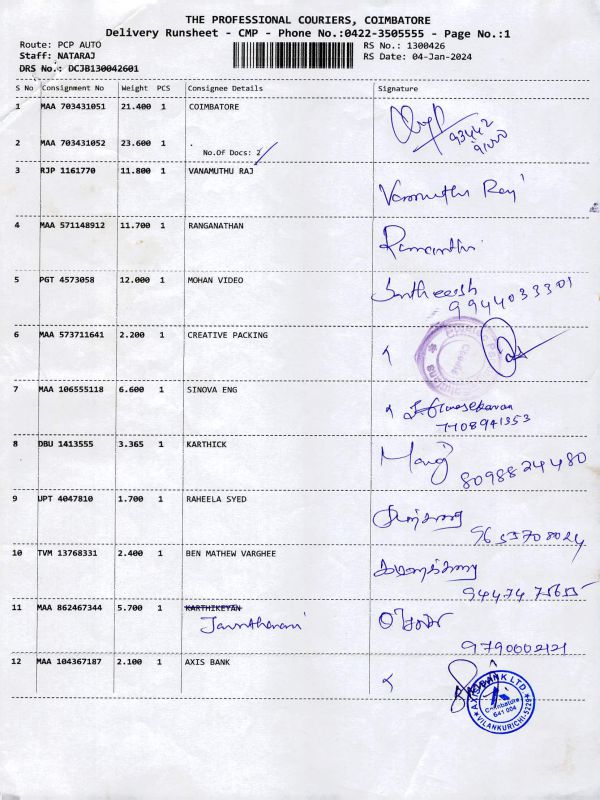 THE PROFESSIONAL COURIERS, COIMBATORE
Delivery Runsheet - CMP - Phone No.:0422-3505555 - Page No.:1
Route: PCP AUTO
RS No.: 1300426
Staff: NATARAJ
RS Date: 04-Jan-2024
DRS No.: DCJB130042601
S No Consignment No Weight PCS Consignee Details Signature
1 MAA 703431051 21.400 1 COIMBATORE
93442
91000
2 MAA 703431052 23.600 1 .
No.Of Docs: 2
3 RJP 1161770 11.800 1 VANAMUTHU RAJ
4 MAA 571148912 11.700 1 RANGANATHAN
5 PGT 4573058 12.000 1 MOHAN VIDEO
9944033301
6 MAA 573711641 2.200 1 CREATIVE PACKING
7 MAA 106555118 6.600 1 SINOVA ENG
7708941353
8 DBU 1413555 3.365 1 KARTHICK
8098824480
9 UPT 4047810 1.700 1 RAHEELA SYED
10 TVM 13768331 2.400 1 BEN MATHEW VARGHEE
11 MAA 862467344 5.700 1 KARTHIKEYAN
9790002121
12 MAA 104367187 2.100 1 AXIS BANK
AXIS BANK LTD
Coimbatore
641 004